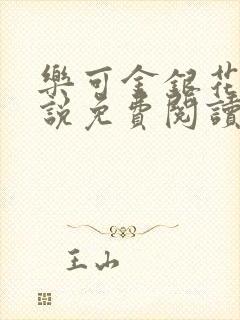 樂可金銀花
說免費閱讀
王山